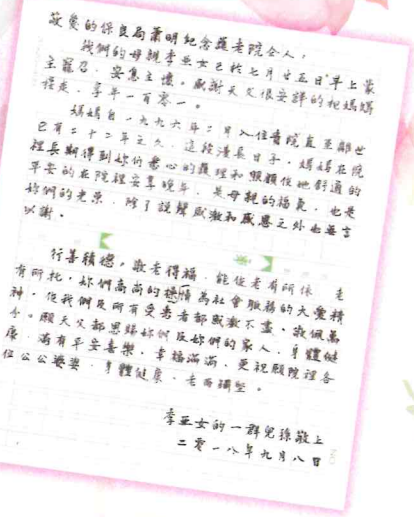 敬愛的保良局蕭明紀念護老院全人，
我們的母親李亞女已於七月廿五日早上蒙
主寵召，安息主懷。感謝天父很安詳的把媽媽
接走，享年一百零一。
媽媽自一九九六年二月入住貴院直至離世
已有二十二年之久，這段漫長日子，媽媽在院
裡長期得到妳們悉心的護理和照顧使她舒適的
平安的在院裡安享晚年，是母親的福氣，也是
妳們的光景，除了說聲感激和感恩之外也無言
以謝。
行善積德，敬老得福，能使老有所依，老
有所托，妳們高尚的德情為社會服務的大愛精
神，使我們及所有受惠者都感激不盡，敬佩萬
分。願天父都恩賜妳們及妳們的家人，身體健
康，滿有平安喜樂，幸福滿滿，更祝願院裡各
位公公婆婆，身體健康，老而彌堅。
李亞女的一群兒孫敬上
二零一八年九月八日